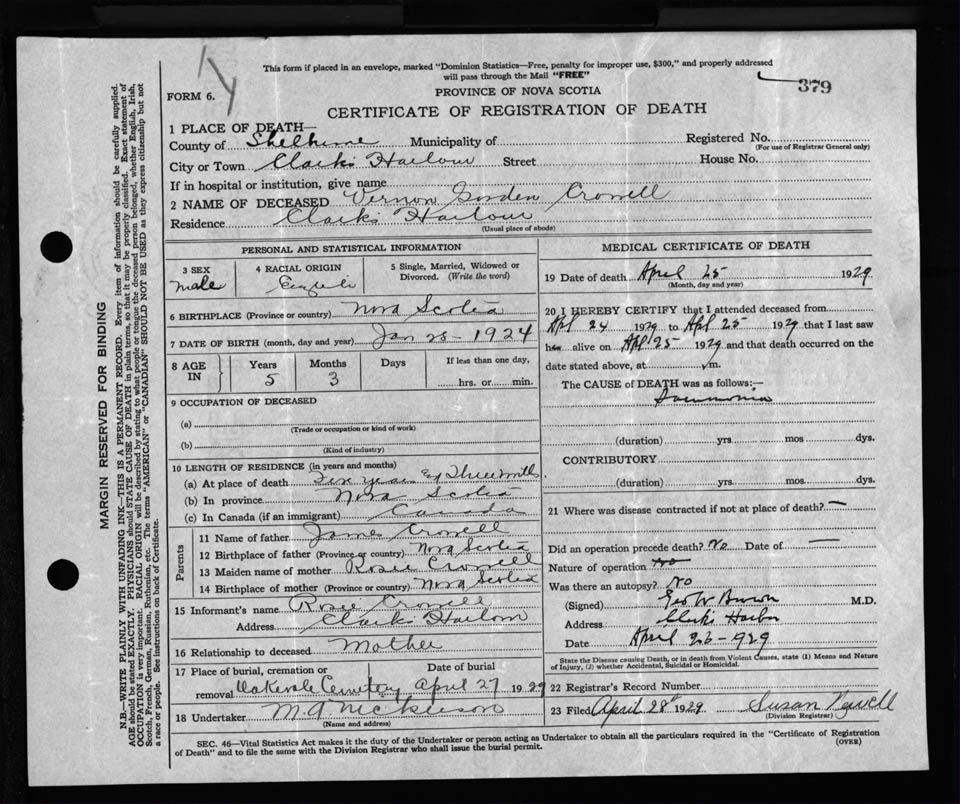 This form if placed in an envelope, marked "Dominion Statistics—Free, penalty for improper use, $300," and properly addressed
will pass through the Mail "FREE"
379
FORM 6.
PROVINCE OF NOVA SCOTIA
CERTIFICATE OF REGISTRATION OF DEATH
1 PLACE OF DEATH—
County of Shelburne Municipality of Registered No.
(For use of Registrar General only)
City or Town Clarks Harbour Street House No.
If in hospital or institution, give name
2 NAME OF DECEASED Vernon Gorden Crowell
Residence Clarks Harbour
(Usual place of abode)
PERSONAL AND STATISTICAL INFORMATION
3 SEX 4 RACIAL ORIGIN 5 Single, Married, Widowed or
Divorced. (Write the word)
male English
6 BIRTHPLACE (Province or country) Nova Scotia
7 DATE OF BIRTH (month, day and year) Jan 25 - 1924
8 AGE IN Years Months Days If less than one day,
5 3 hrs. or min.
9 OCCUPATION OF DECEASED
(a)
(Trade or occupation or kind of work)
(b)
(Kind of industry)
10 LENGTH OF RESIDENCE (in years and months)
(a) At place of death years Three
(b) In province Nova Scotia
(c) In Canada (if an immigrant) Canada
Parents
11 Name of father James Crowell
12 Birthplace of father (Province or country) Nova Scotia
13 Maiden name of mother Rosie Crowell
14 Birthplace of mother (Province or country) Nova Scotia
15 Informant's name Rosie Crowell
Address Clarks Harbour
16 Relationship to deceased Mother
17 Place of burial, cremation or Date of burial
removal Cemetery April 27 1929
18 Undertaker M A Nickerson
(Name and address)
MEDICAL CERTIFICATE OF DEATH
19 Date of death April 25 1929
(Month, day and year)
20 I HEREBY CERTIFY that I attended deceased from
Apl 24 1929 to Apl 25 1929 that I last saw
him alive on Apl 25 1929 and that death occurred on the
date stated above, at m.
The CAUSE of DEATH was as follows:—
Pneumonia
(duration) yrs mos dys.
CONTRIBUTORY
(duration) yrs. mos. dys.
21 Where was disease contracted if not at place of death? —
Did an operation precede death? No Date of —
Nature of operation no
Was there an autopsy? No
(Signed) Geo W Brown M.D.
Address Clarks Harbor
Date April 26-929
State the Disease causing Death, or in death from Violent Causes, state (1) Means and Nature
of Injury, (2) whether Accidental, Suicidal or Homicidal.
22 Registrar's Record Number
23 Filed April 28th 1929 Susan Newell
(Division Registrar)
SEC. 46—Vital Statistics Act makes it the duty of the Undertaker or person acting as Undertaker to obtain all the particulars required in the "Certificate of Registration
of Death" and to file the same with the Division Registrar who shall issue the burial permit. (OVER)
MARGIN RESERVED FOR BINDING
N.B.—WRITE PLAINLY WITH UNFADING INK—THIS IS A PERMANENT RECORD. Every item of information should be carefully supplied.
AGE should be stated EXACTLY. PHYSICIANS should STATE CAUSE OF DEATH in plain terms, so that it may be properly classified. Exact statement of
OCCUPATION is very important. RACIAL ORIGIN will be described by stating to what people or tongue the deceased person belonged, whether English, Irish,
Scotch, French, German, Russian, Ruthenian, etc. The terms "AMERICAN" or "CANADIAN" SHOULD NOT BE USED as they express citizenship but not
a race or people. See instructions on back of Certificate.